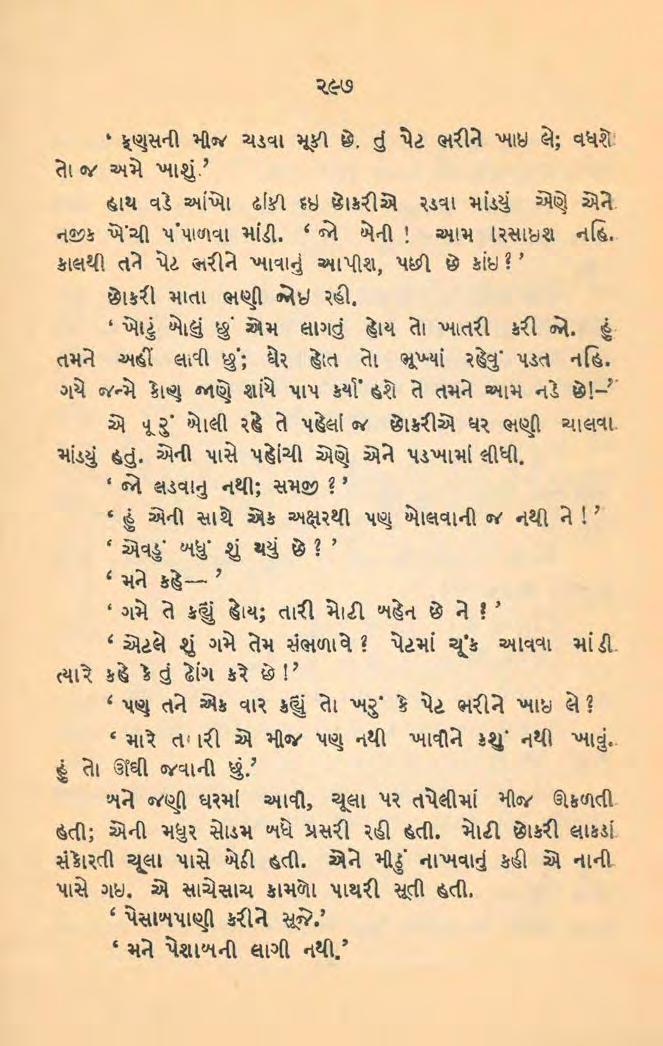 ૨૯૭
‘ ફણસની મીજ ચડવા મૂકી છે. તું પેટ ભરીને ખાઇ લે; વધશે
તો જ અમે ખાશું.’
હાથ વડે આંખો ઢાંકી દઇ છોકરીએ રડવા માંડયું એણે એને
નજીક ખેંચી પંપાળવા માંડી. ‘ જો બેની ! આમ રિસાઇશ નહિ.
કાલથી તને પેટ ભરીને ખાવાનું આપીશ, પછી છે કાંઇ ? ’
છોકરી માતા ભણી જોઇ રહી.
‘ ખોટું બોલું છું એમ લાગતું હોય તો ખાતરી કરી જો. હું
તમને અહીં લાવી છું; ઘેર હોત તો ભૂખ્યાં રહેવું પડત નહિ.
ગયે જન્મે કોણ જાણે શાંયે પાપ કર્યાં હશે તે તમને આમ નડે છે!–’
એ પૂરું બોલી રહે તે પહેલાં જ છોકરીએ ઘર ભણી ચાલવા
માંડયું હતું. એની પાસે પહોંચી એણે એને પડખામાં લીધી.
‘ જો લડવાનુ નથી; સમજી ? ’
‘ હું એની સાથે એક અક્ષરથી પણ બોલવાની જ નથી ને ! ’
‘ એવડું બધું શું થયું છે ? ’
‘ મને કહે— ’
‘ ગમે તે કહ્યું હોય; તારી મોટી બહેન છે ને ? ’
‘ એટલે શું ગમે તેમ સંભળાવે ? પેટમાં ચૂંક આવવા માંડી
ત્યારે કહે કે તું ઢોંગ કરે છે !’
‘ પણ તને એક વાર કહ્યું તો ખરું કે પેટ ભરીને ખાઇ લે ?
‘ મારે તારી એ મીજ પણ નથી ખાવીને કશું નથી ખાવું.
હું તો ઊંઘી જવાની છું.’
બને જણી ઘરમાં આવી, ચૂલા પર તપેલીમાં મીજ ઊકળતી
હતી; એની મધુર સોડમ બધે પ્રસરી રહી હતી. મોટી છોકરી લાકડાં
સંકોરતી ચૂલા પાસે બેઠી હતી. એને મીઠું નાખવાનું કહી એ નાની
પાસે ગઇ. એ સાચેસાચ કામળો પાથરી સૂતી હતી.
‘ પેસાબપાણી કરીને સૂજે.’
‘ મને પેશાબની લાગી નથી.’